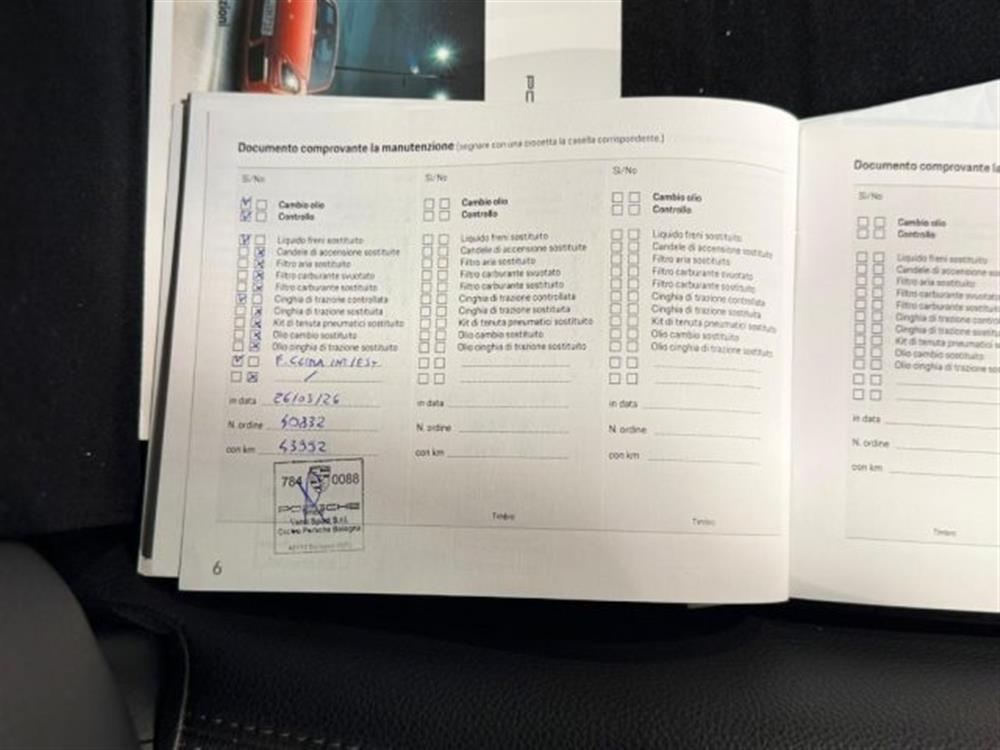 Documento comprovante la manutenzione (segnare con una crocetta la casella corrispondente.)
Sì/No
Cambio olio
Controllo
Liquido freni sostituito
Candele di accensione sostituite
Filtro aria sostituito
Filtro carburante svuotato
Filtro carburante sostituito
Cinghia di trazione controllata
Cinghia di trazione sostituita
Kit di tenuta pneumatici sostituito
Olio cambio sostituito
Olio cinghia di trazione sostituito
in data 26/03/26
N. ordine 50832
con km 43992
784 0088
PORSCHE
Centro Porsche Bologna
6
Sì/No
Cambio olio
Controllo
Liquido freni sostituito
Candele di accensione sostituite
Filtro aria sostituito
Filtro carburante svuotato
Filtro carburante sostituito
Cinghia di trazione controllata
Cinghia di trazione sostituita
Kit di tenuta pneumatici sostituito
Olio cambio sostituito
Olio cinghia di trazione sostituito
in data
N. ordine
con km
Timbro
Sì/No
Cambio olio
Controllo
Liquido freni sostituito
Candele di accensione sostituite
Filtro aria sostituito
Filtro carburante svuotato
Filtro carburante sostituito
Cinghia di trazione controllata
Cinghia di trazione sostituita
Kit di tenuta pneumatici sostituito
Olio cambio sostituito
Olio cinghia di trazione sostituito
in data
N. ordine
con km
Timbro
Documento comprovante la
Sì/No
Cambio olio
Controllo
Liquido freni sostituito
Candele di accensione sost
Filtro aria sostituito
Filtro carburante svuotato
Filtro carburante sostituito
Cinghia di trazione contro
Cinghia di trazione sostitu
Kit di tenuta pneumatici s
Olio cambio sostituito
Olio cinghia di trazione so
in data
N. ordine
con km
Timbro